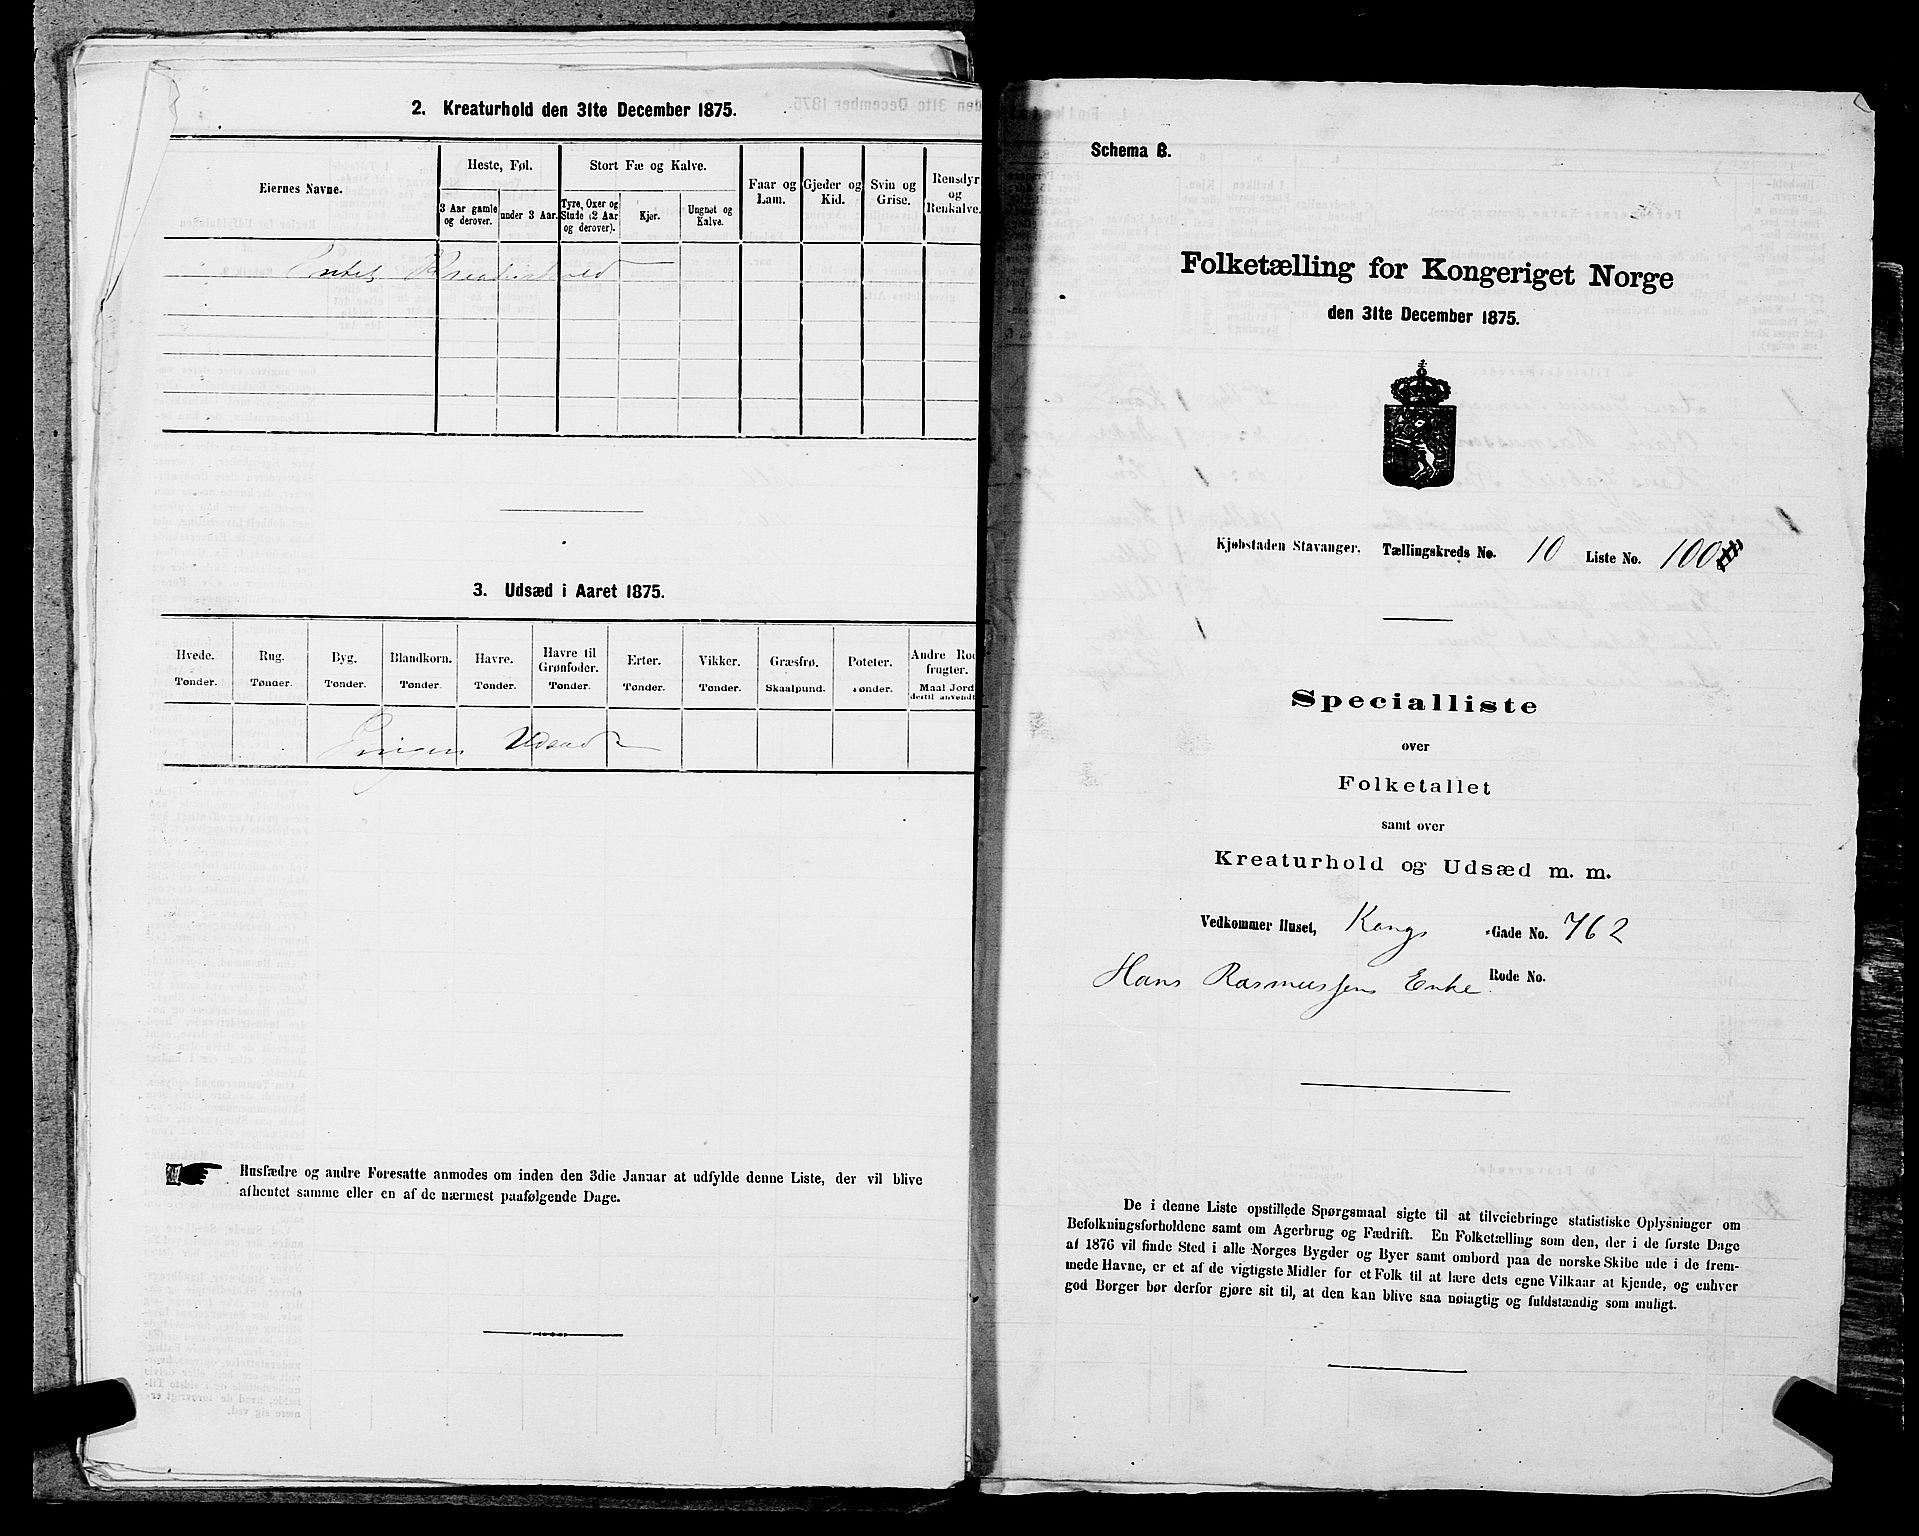 2. Kreaturhold den 31te December 1875.
Eiernes Navne.
Heste, Føl.
3 Aar gamle og derover.
under 3 Aar.
Stort Fæ og Kalve.
Tyre, Oxer og Stude (2 Aar og derover).
Kjør.
Ungnøt og Kalve.
Faar og Lam.
Gjeder og Kid.
Svin og Grise.
Rensdyr og Renkalve.
Intet Kreaturhold
3. Udsæd i Aaret 1875.
Hvede. Rug. Byg. Blandkorn. Havre. Havre til Grønfoder. Erter. Vikker. Græsfrø. Poteter. Andre Rodfrugter.
Tønder. Tønder. Tønder. Tønder. Tønder. Tønder. Tønder. Tønder. Skaalpund. Tønder. Maal Jord dertil anvendt
Ingen Udsæd
Husfædre og andre Foresatte anmodes om inden den 3die Januar at udfylde denne Liste, der vil blive
afhentet samme eller en af de nærmest paafølgende Dage.
Schema B.
Folketælling for Kongeriget Norge
den 31te December 1875.
Kjøbstaden Stavanger. Tællingskreds No. 10 Liste No. 100
Specialliste
over
Folketallet
samt over
Kreaturhold og Udsæd m. m.
Vedkommer Huset, Kongs -Gade No. 762
Hans Rasmussens Enke Rode No.
De i denne Liste opstillede Spørgsmaal sigte til at tilveiebringe statistiske Oplysninger om
Befolkningsforholdene samt om Agerbrug og Fædrift. En Folketælling som den, der i de første Dage
af 1876 vil finde Sted i alle Norges Bygder og Byer samt ombord paa de norske Skibe ude i de frem-
mede Havne, er et af de vigtigste Midler for et Folk til at lære dets egne Vilkaar at kjende, og enhver
god Borger bør derfor gjøre sit til, at den kan blive saa nøiagtig og fuldstændig som muligt.